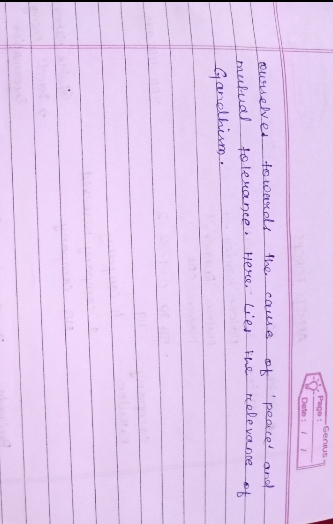 Genius
Page:
Date: / /
ourselves towards the cause of 'peace' and
mutual tolerance. Here, lies the relevance of
Gandhism.